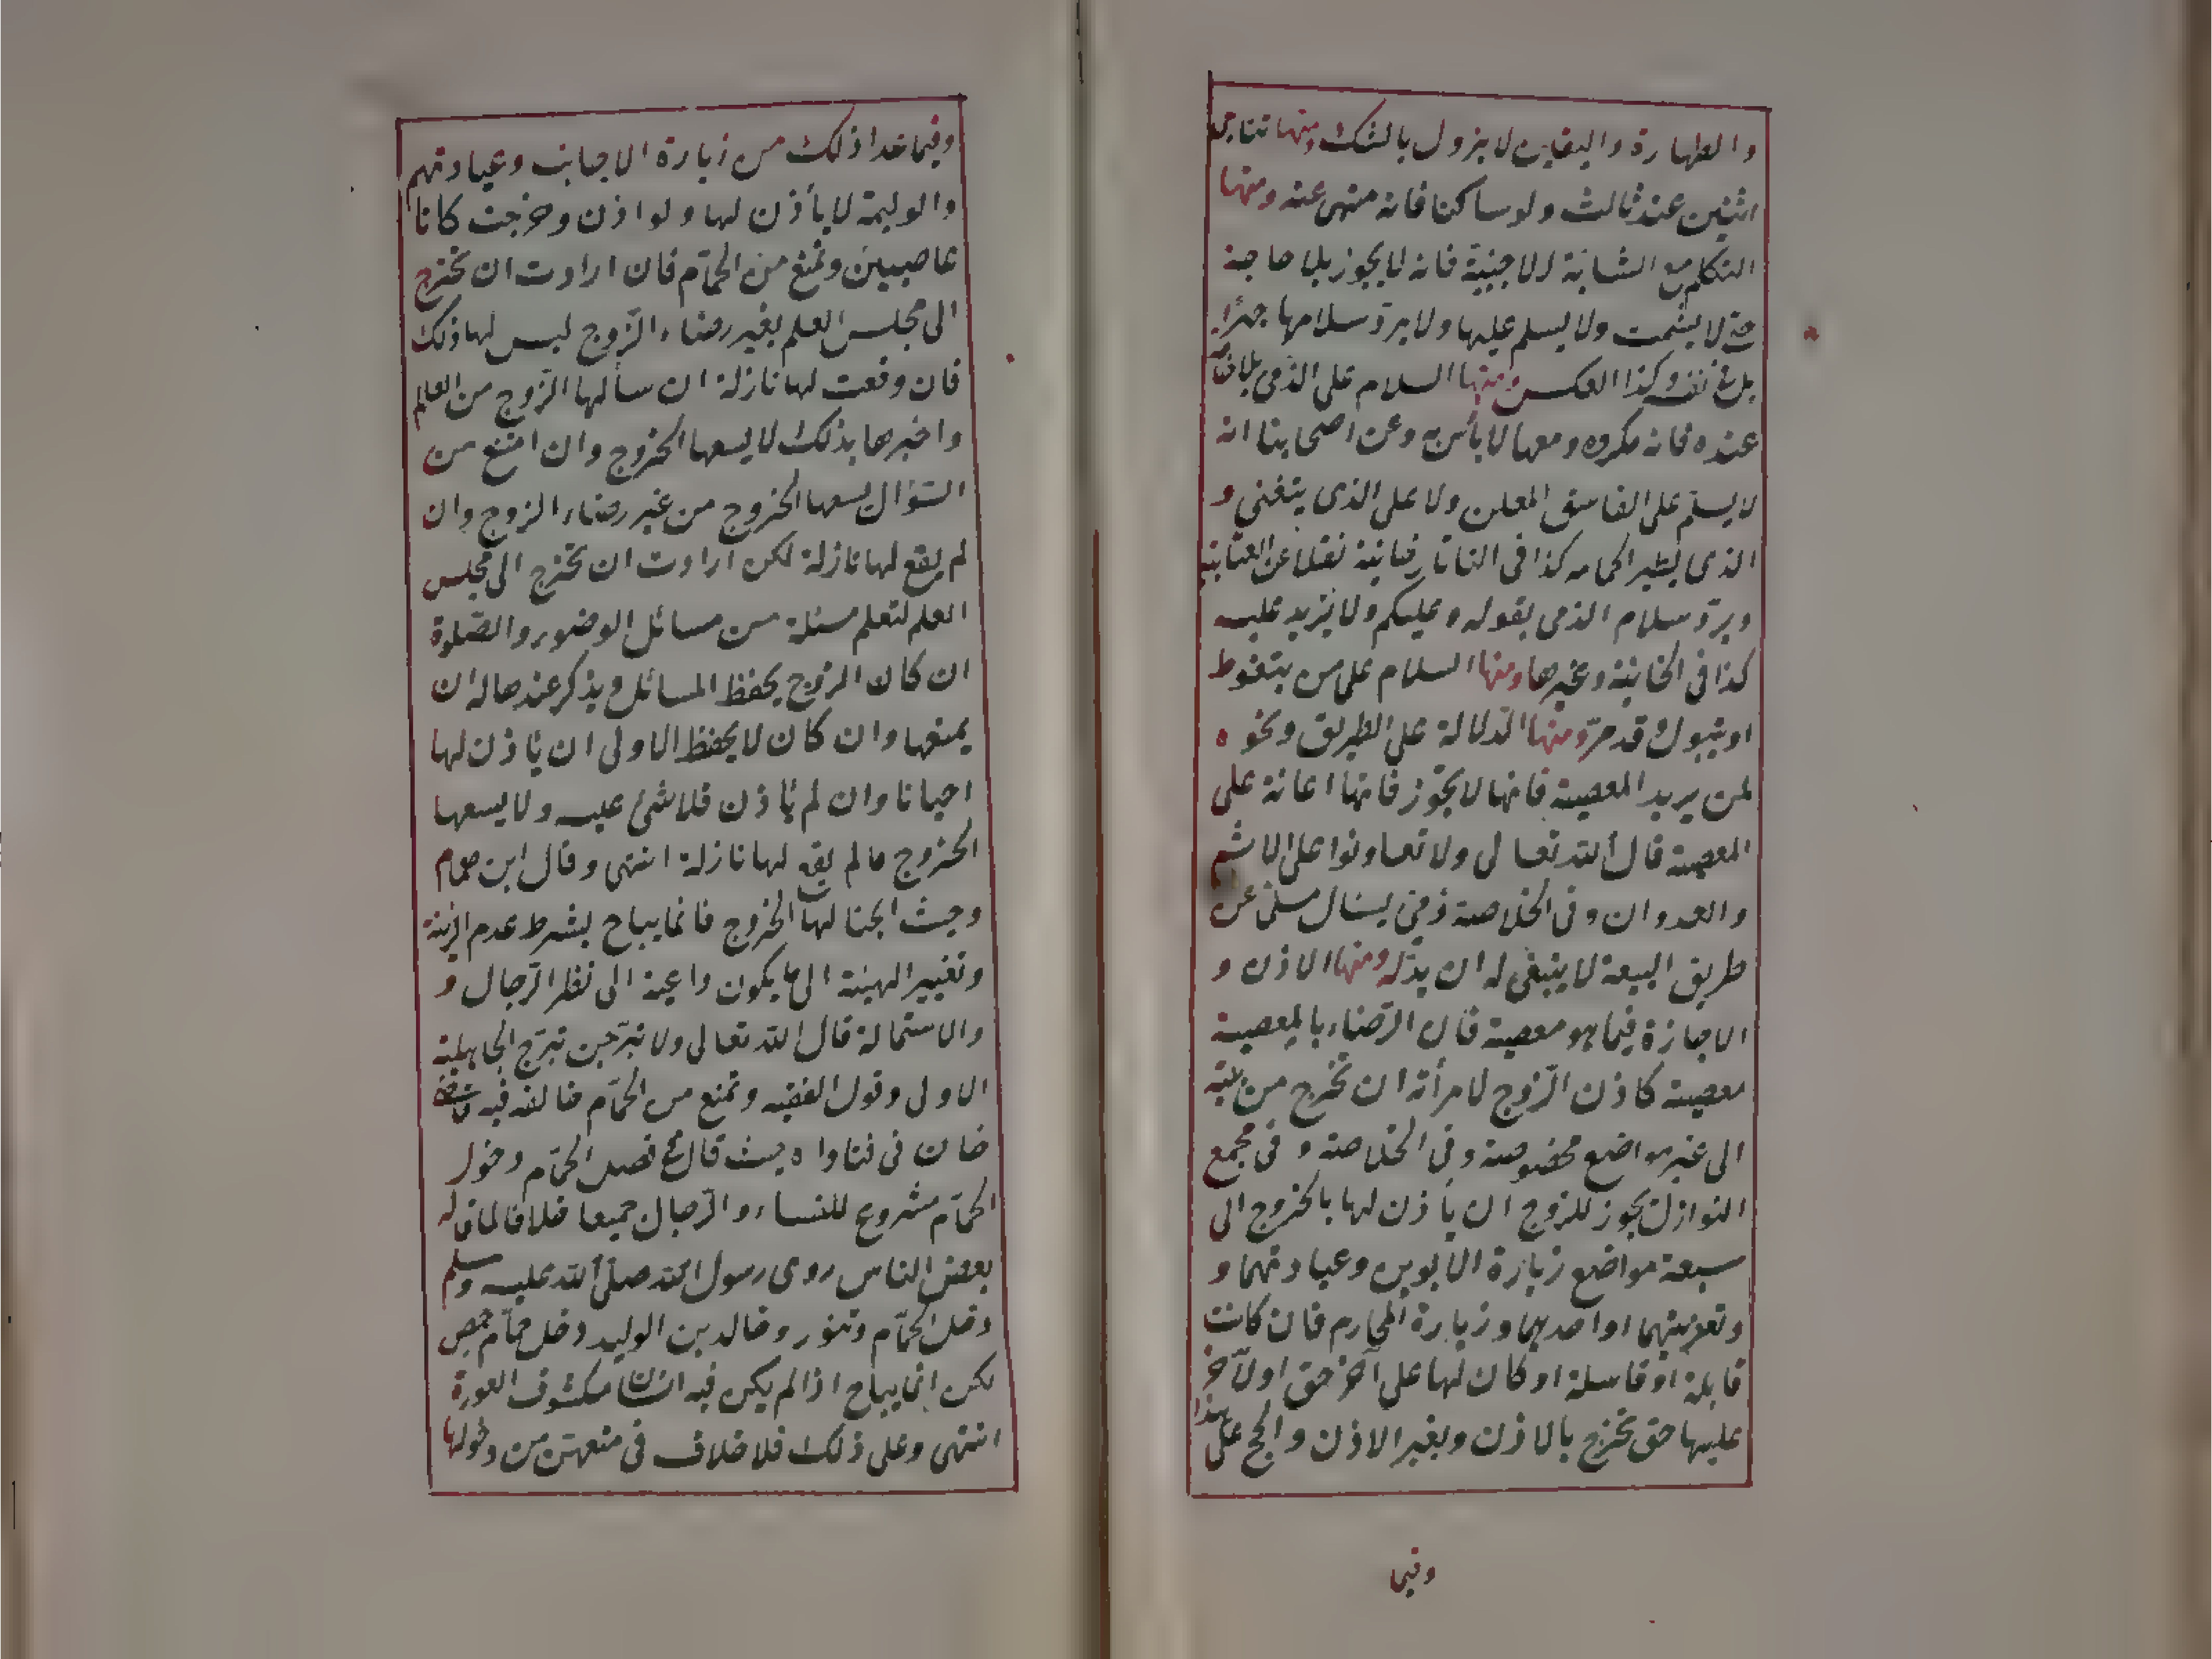 والطهارة واليقين لا يزول بالشك ومنها تناجى
اثنين عند ثالث ولو ساكنا فانه منهى عنه ومنها
التكلم مع الشابة الاجنبية فانه لا يجوز بلا حاجة
حتى لا يشمت ولا يسلم عليها ولا يرد سلامها جهرا
بل فى نفسه وكذا العكس ومنها السلام على الذمى بلا حاجة
عنده فانه مكروه ومعها لا بأس به وعن اصحابنا انه
لا يسلم على الفاسق المعلن ولا على الذى يتغنى و
الذى يطير الحمامه كذا فى التاتارخانية نقلا عن العتابية
ويرد سلام الذمى بقوله وعليكم ولا يزيد عليه
كذا فى الخانية وغيرها ومنها السلام على من يتغوط
او يبول قد مر ومنها الدلالة على الطريق ونحوه
لمن يريد المعصية فانها لا يجوز فانها اعانة على
المعصية قال الله تعالى ولا تعاونوا على الاثم
والعدوان وفى الخلاصة ذمى يسأل مسلما عن
طريق البيعة لا ينبغى له ان يدله ومنها الاذن و
الاجازة فيما هو معصية فان الرضاء بالمعصية
معصية كاذن الزوج لامرأته ان تخرج من بيته
الى غير مواضع مخصوصة وفى الخلاصة وفى مجمع
النوازل يجوز للزوج ان يأذن لها بالخروج الى
سبعة مواضع زيارة الابوين وعيادتهما و
وتعزيتهما او احدهما وزيارة المحارم فان كانت
قابلة او غاسلة او كان لها على آخر حق او لآخر
عليها حق تخرج بالاذن وبغير الاذن والحج على هذا
وفيما
وفيما عدا ذلك من زيارة الاجانب وعيادتهم
والوليمة لا يأذن لها ولو اذن وخرجت كانا
عاصيين وتمنع من الحمام فان ارادت ان تخرج
الى مجلس العلم بغير رضاء الزوج ليس لها ذلك
فان وقعت لها نازلة ان سأل لها الزوج من العالم
واخبرها بذلك لا يسعها الخروج وان امتنع من
السؤال يسعها الخروج من غير رضاء الزوج وان
لم يقع لها نازلة لكن ارادت ان تخرج الى مجلس
العلم لتعلم مسئلة من مسائل الوضوء والصلوة
ان كان الزوج يحفظ المسائل ويذكر عندها له ان
يمنعها وان كان لا يحفظ الاولى ان يأذن لها
احيانا وان لم يأذن فلا شئ عليه ولا يسعها
الخروج ما لم يقع لها نازلة انتهى وقال ابن همام
وحيث ابحنا لها الخروج فانما يباح بشرط عدم الزينة
وتغيير الهيئة الى ما يكون داعية الى نظر الرجال و
والاستمالة قال الله تعالى ولا تبرجن تبرج الجاهلية
الاولى وقول الفقيه وتمنع من الحمام خالفه فيه قاضى
خان فى فتاواه حيث قال فى فصل الحمام دخول
الحمام مشروع للنساء والرجال جميعا خلافا لما قاله
بعض الناس روى رسول الله صلى الله عليه وسلم
دخل الحمام وتنور وخالد بن الوليد دخل حمام حمص
لكن انما يباح اذا لم يكن فيه انسان مكشوف العورة
انتهى وعلى ذلك فلا خلاف فى منعهن من دخولها